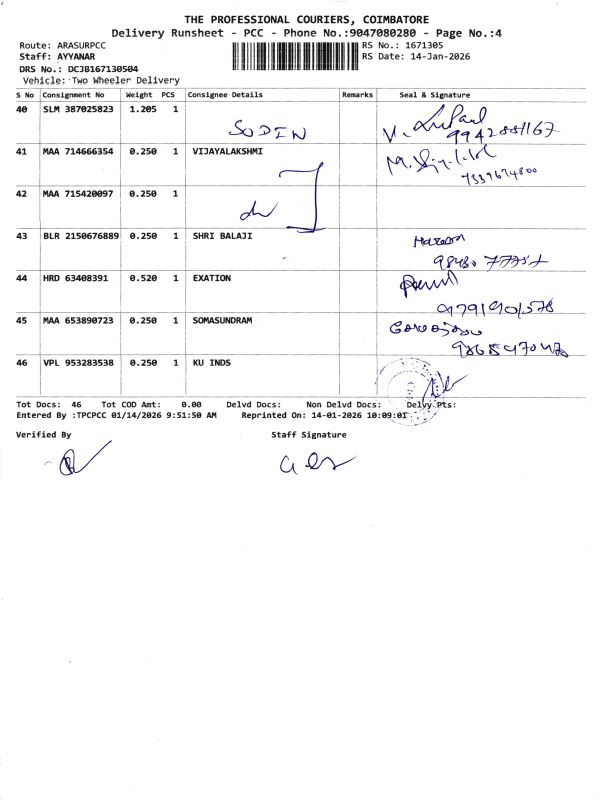 THE PROFESSIONAL COURIERS, COIMBATORE
Delivery Runsheet - PCC - Phone No.:9047080280 - Page No.:4
Route: ARASURPCC
RS No.: 1671305
Staff: AYYANAR
RS Date: 14-Jan-2026
DRS No.: DCJB167130504
Vehicle: Two Wheeler Delivery
S No Consignment No Weight PCS Consignee Details Remarks Seal & Signature
40 SLM 387025823 1.205 1
SODEN
9942881167
41 MAA 714666354 0.250 1 VIJAYALAKSHMI
7339674800
42 MAA 715420097 0.250 1
43 BLR 2150676889 0.250 1 SHRI BALAJI
44 HRD 63408391 0.520 1 EXATION
9791901578
45 MAA 653890723 0.250 1 SOMASUNDRAM
46 VPL 953283538 0.250 1 KU INDS
Tot Docs: 46 Tot COD Amt: 0.00 Delvd Docs: Non Delvd Docs: Delvy.Pts:
Entered By :TPCPCC 01/14/2026 9:51:50 AM Reprinted On: 14-01-2026 10:09:01
Verified By Staff Signature